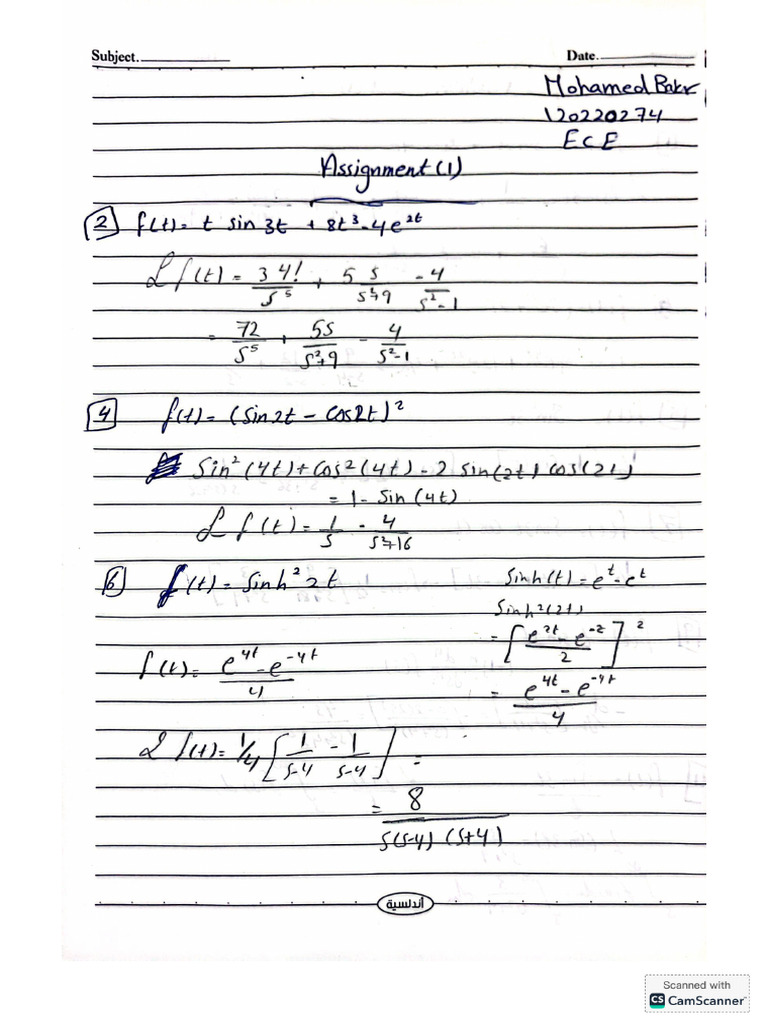 Subject. Date.
Mohamed Bakr
120220274
ECE
Assignment (1)
2 f(t)= t sin 3t + 8t³ - 4e^2t
ℒ f(t) = 3 4!/s^5 + 5 s/s²+9 - 4/s²-1
= 72/s^5 + 5s/s²+9 - 4/s²-1
4 f(t)= (sin 2t - cos 2t)²
sin²(4t) + cos²(4t) - 2 sin(2t) cos(2t)
= 1 - sin(4t)
ℒ f(t) = 1/s - 4/s²+16
6 f(t) = sinh² 2t sinh(t) = e^t - e^t
sinh²(2t)
= [e^2t - e^-2/2]²
f(t) = e^4t - e^-4t/4 = e^4t - e^-4t/4
ℒ f(t) = 1/4 [1/s-4 - 1/s-4] =
= 8/s(s-4)(s+4)
أندلسية
Scanned with
CS CamScanner